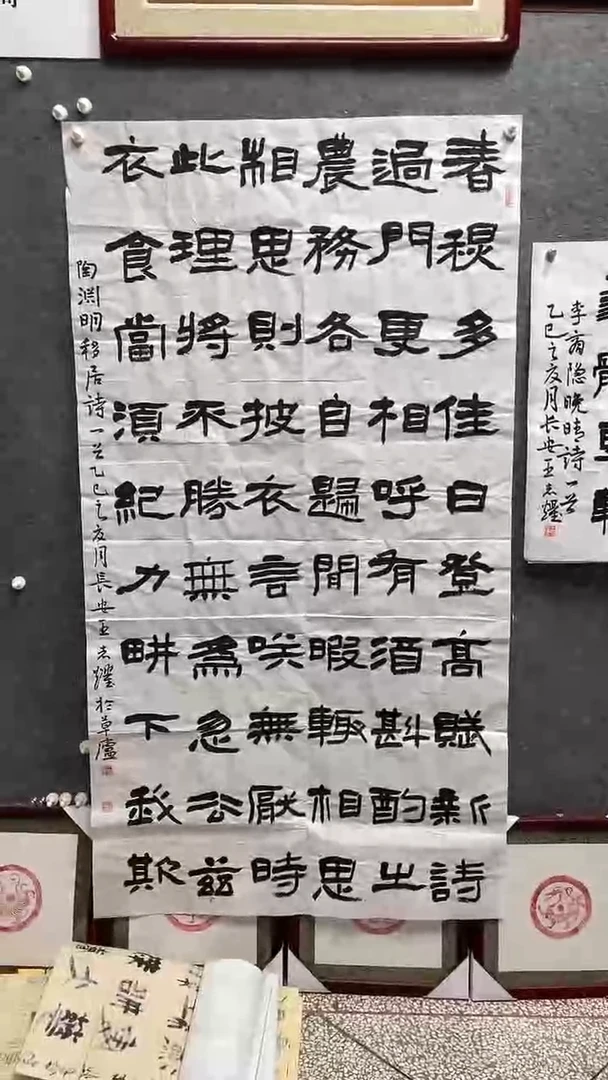 春秋多佳日登高賦新詩
過門更相呼有酒斟酌之
農務各自歸閒暇輒相思
相思則披衣言咲無厭時
此理將不勝無為忽去茲
衣食當須紀力畊不我欺
陶淵明移居詩一首乙巳之夏月長安王志躍於草廬
李商隐晚晴詩一首
乙巳之夏月长安王志躍